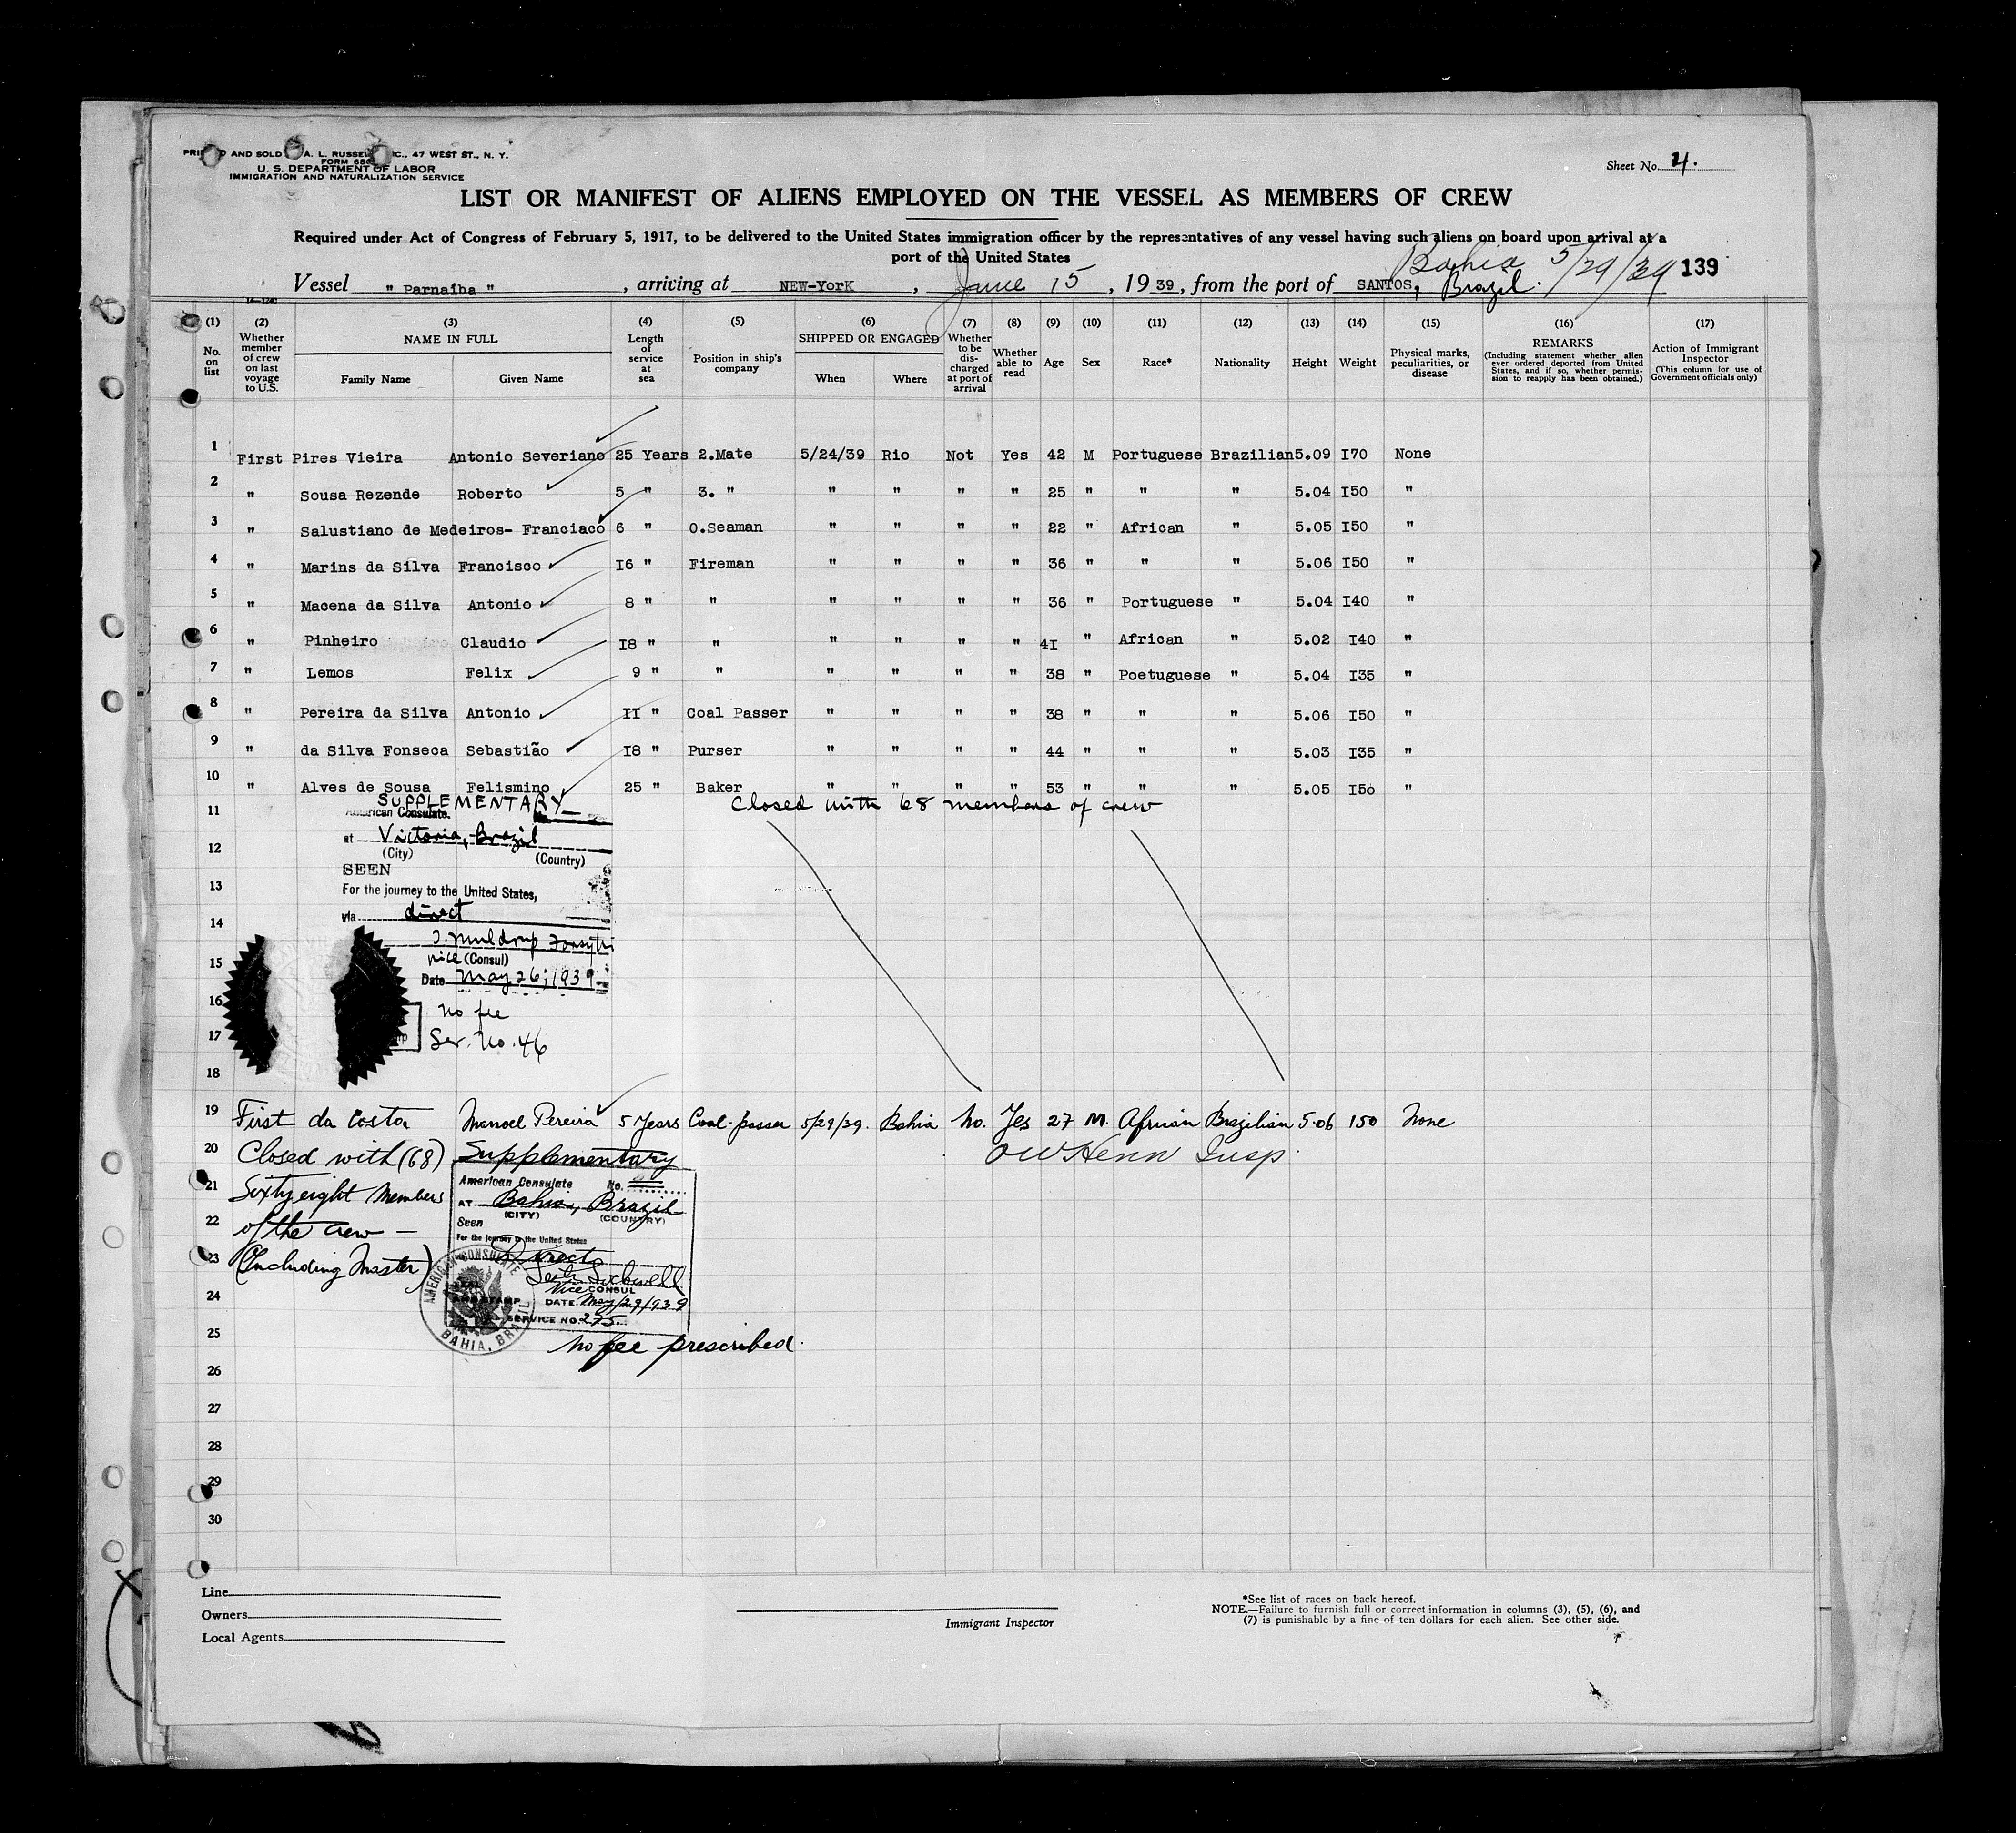 AND SOLD A. L. RUSSELL C., 47 WEST ST., N. Y.
FORM 680
U. S. DEPARTMENT OF LABOR
IMMIGRATION AND NATURALIZATION SERVICE
Sheet No. 4.
LIST OR MANIFEST OF ALIENS EMPLOYED ON THE VESSEL AS MEMBERS OF CREW
Required under Act of Congress of February 5, 1917, to be delivered to the United States immigration officer by the representatives of any vessel having such aliens on board upon arrival at a
port of the United States
Bahia 5/29/39 139
Vessel " Parnaiba ", arriving at NEW-YorK, June 15, 1939, from the port of SANTOS, Brazil.
(1) (2) (3) (4) (5) (6) (7) (8) (9) (10) (11) (12) (13) (14) (15) (16) (17)
No. on list
Whether member of crew on last voyage to U.S.
NAME IN FULL
Family Name Given Name
Length of service at sea
Position in ship's company
SHIPPED OR ENGAGED
When Where
Whether to be discharged at port of arrival
Whether able to read
Age Sex Race* Nationality Height Weight
Physical marks, peculiarities, or disease
REMARKS
(Including statement whether alien ever ordered deported from United States, and if so, whether permission to reapply has been obtained.)
Action of Immigrant Inspector
(This column for use of Government officials only)
1 First Pires Vieira Antonio Severiano 25 Years 2.Mate 5/24/39 Rio Not Yes 42 M Portuguese Brazilian 5.09 I70 None
2 " Sousa Rezende Roberto 5 " 3. " " " " " 25 " " " 5.04 I50 "
3 " Salustiano de Medeiros- Franciaco 6 " O.Seaman " " " " 22 " African " 5.05 I50 "
4 " Marins da Silva Francisco I6 " Fireman " " " " 36 " " " 5.06 I50 "
5 " Macena da Silva Antonio 8 " " " " " " 36 " Portuguese " 5.04 I40 "
6 " Pinheiro Claudio I8 " " " " " " 4I " African " 5.02 I40 "
7 " Lemos Felix 9 " " " " " " 38 " Poetuguese " 5.04 I35 "
8 " Pereira da Silva Antonio II " Coal Passer " " " " 38 " " " 5.06 I50 "
9 " da Silva Fonseca Sebastião I8 " Purser " " " " 44 " " " 5.03 I35 "
10 " Alves de Sousa Felismino 25 " Baker " " " " 53 " " " 5.05 I5o "
SUPPLEMENTARY Closed with 68 members of crew
11 American Consulate.
at Victoria, Brazil
12 (City) (Country)
SEEN
13 For the journey to the United States,
14 via direct
J. Muldrup Forsyth
15 vice (Consul)
Date May 26, 1939
16 no fee
17 Ser. No. 46
18
19 First da Costa Manoel Pereira 5 Years Coal-passer 5/29/39. Bahia No. Yes 27 M. African Brazilian 5.06 150 None
20 Closed with (68) Supplementary OW Henn Insp.
21 Sixty eight Members American Consulate No.
AT Bahia, Brazil
22 of the crew — (CITY) (COUNTRY)
Seen
For the journey to the United States
23 (Including Master) Direct
VICE CONSUL
24 DATE May/29/939
SERVICE NO. 275
AMERICAN CONSULATE
BAHIA, BRAZIL
25 No fee prescribed.
26
27
28
29
30
Line
Owners
Local Agents
Immigrant Inspector
*See list of races on back hereof.
NOTE.—Failure to furnish full or correct information in columns (3), (5), (6), and
(7) is punishable by a fine of ten dollars for each alien. See other side.